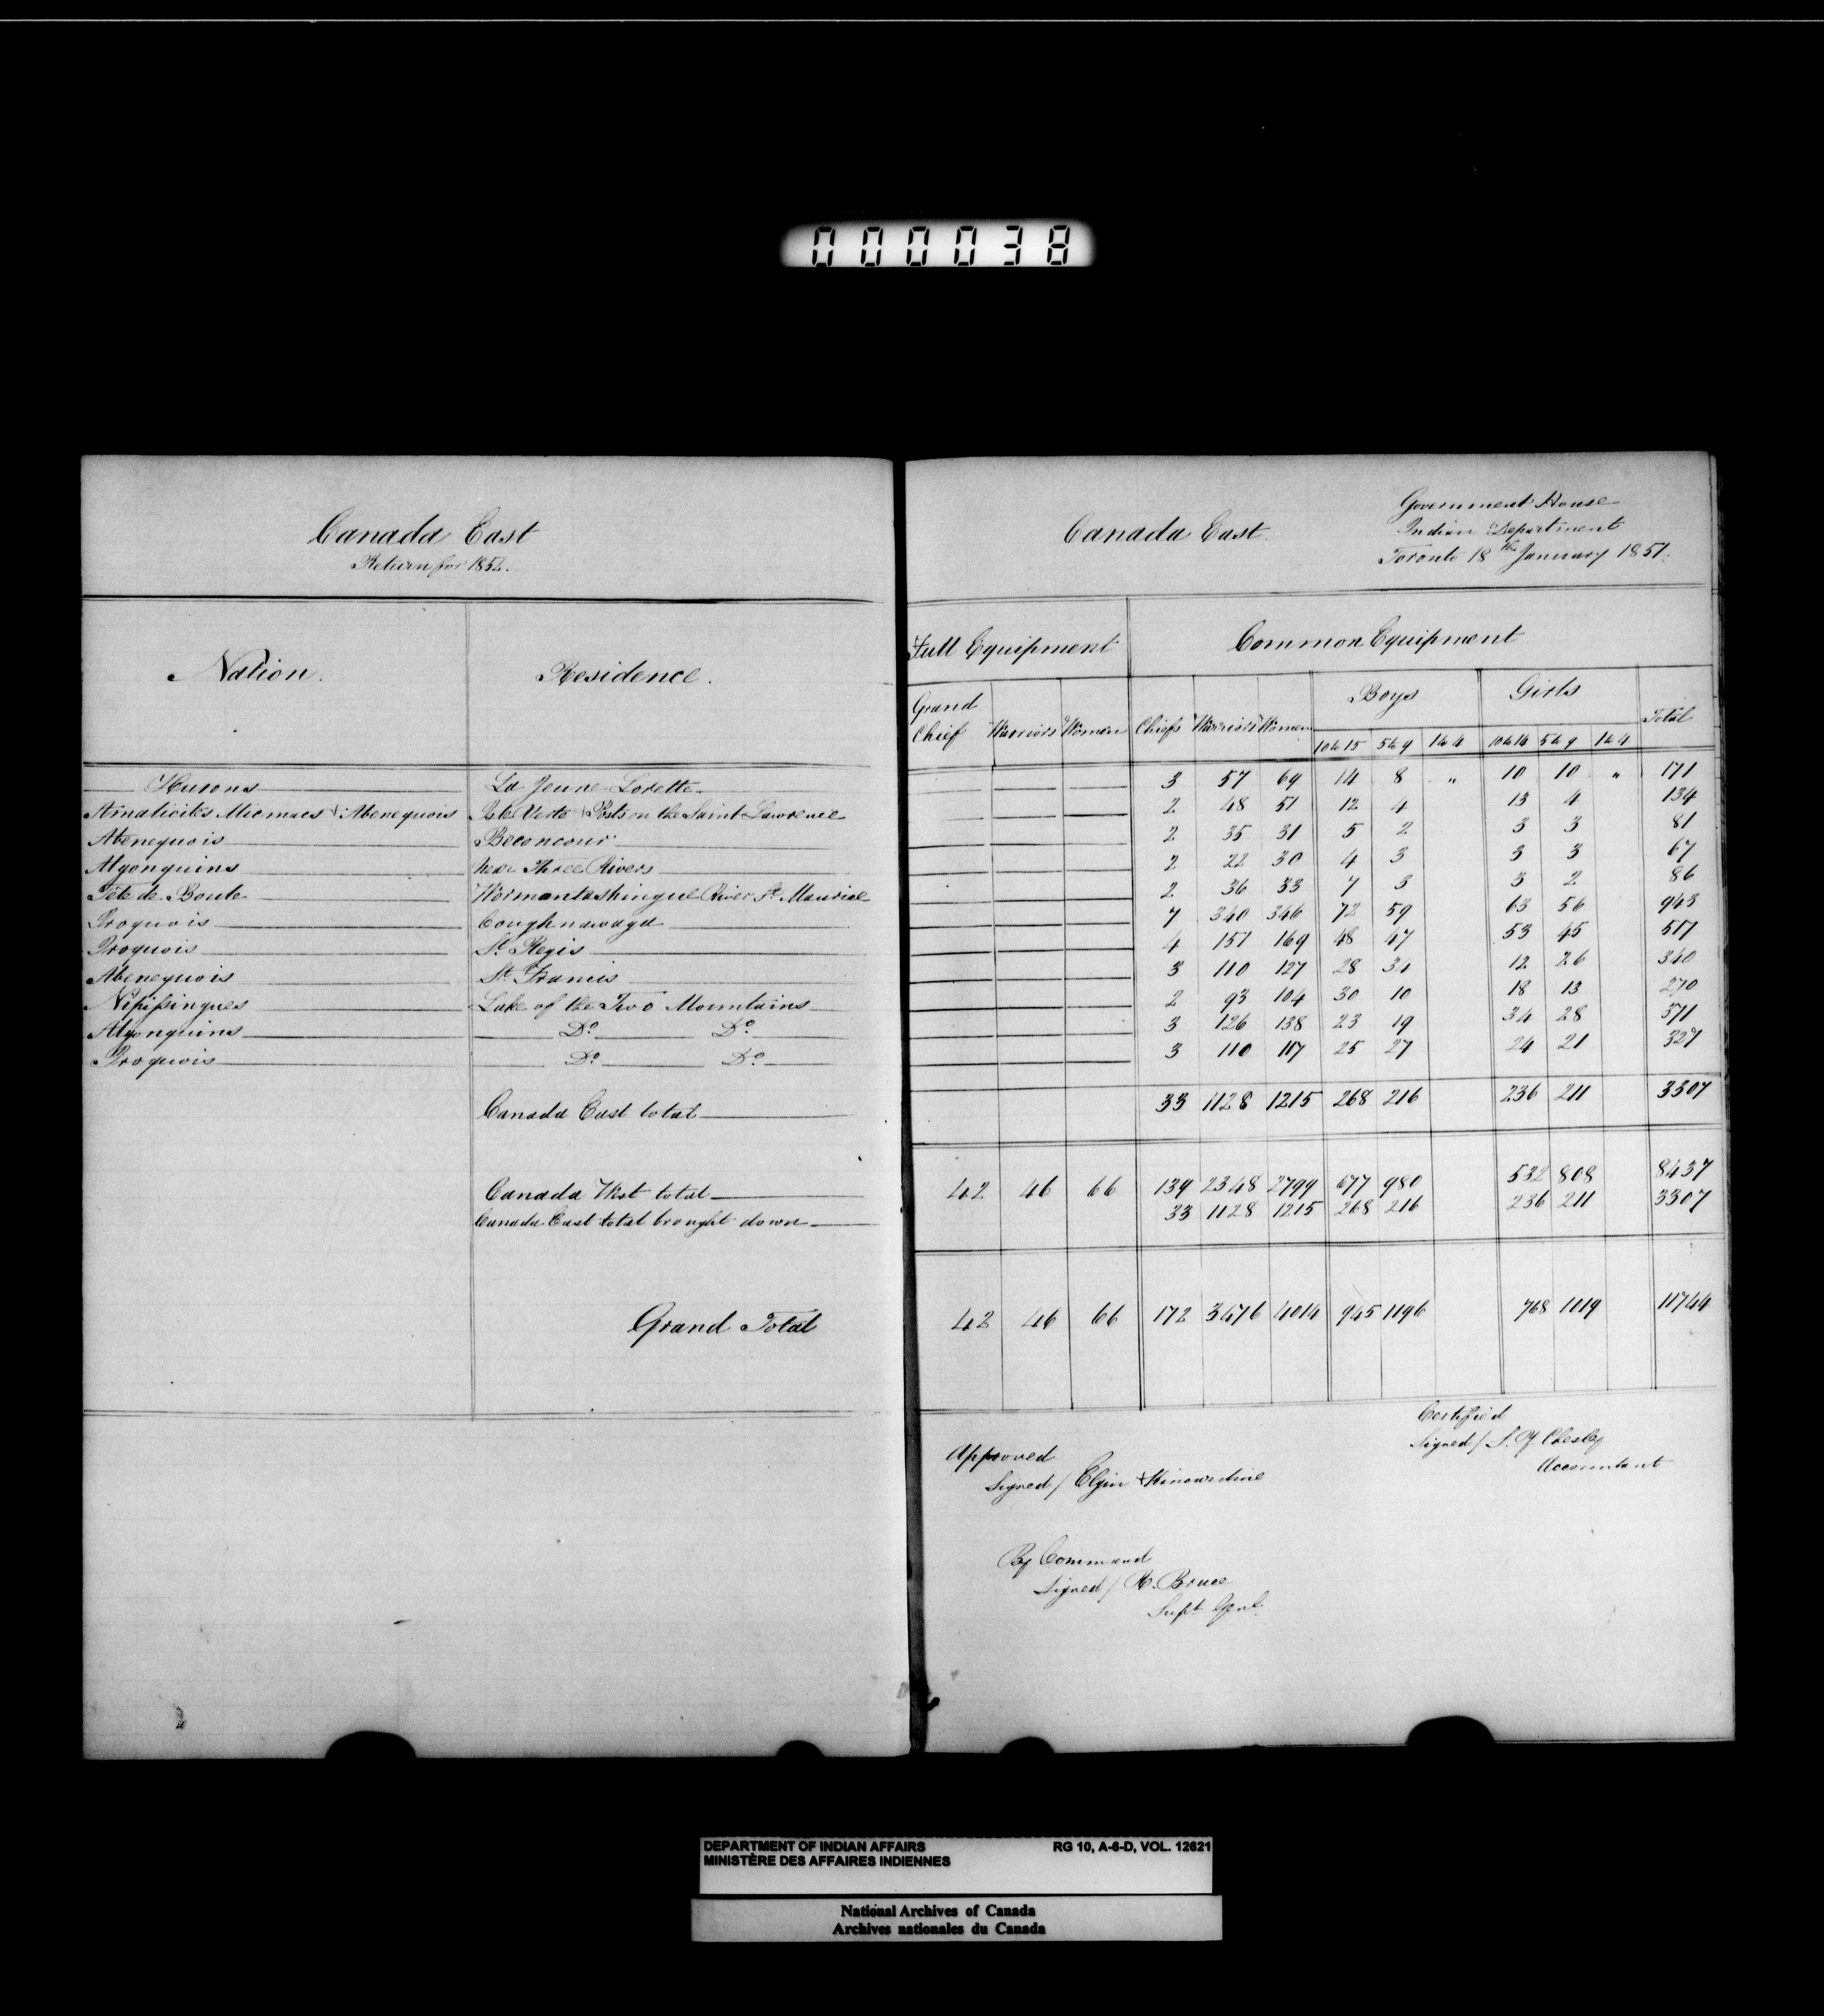 000038
Canada East
Return for 1852.
Nation. Residence.
Hurons La Jeune Lorette
Amalicites Micmacs & Abenequois Isle Verte & Posts on the Saint Lawrence
Abenequois Beconcour
Algonquins Near Three Rivers
Tête de Boule Wormontashingue River St. Maurice
Iroquois Coughnawaga
Iroquois St. Regis
Abenequois St. Francis
Nipissingues Lake of the Two Mountains
Algonquins Do. Do.
Iroquois Do. Do.
Canada East total
Canada West total
Canada East total brought down
Grand Total
Canada East.
Government House
Indian Department
Toronto 18th January 1851.
Full Equipment Common Equipment
Grand Chief Warriors Women Chiefs Warriors Women Boys Girls Total
10 to 15 5 to 9 1 to 4 10 to 14 5 to 9 1 to 4
3 57 69 14 8 " 10 10 " 171
2 48 51 12 4 13 4 134
2 35 31 5 2 3 3 81
2 22 30 4 3 3 3 67
2 36 33 7 3 3 2 86
7 340 346 72 59 63 56 943
4 151 169 48 47 53 45 517
3 110 127 28 34 12 26 340
2 93 104 30 10 18 13 270
3 126 138 23 19 34 28 371
3 110 117 25 27 24 21 327
33 1128 1215 268 216 236 211 3307
42 46 66 139 2348 2799 677 980 532 808 8437
33 1128 1215 268 216 236 211 3307
42 46 66 172 3476 4014 945 1196 768 1019 11744
Certified
Signed / S. Y. Chesley
Accountant
Approved
Signed / Elgin & Kincardine
By Command
Signed / R. Bruce
Supt. Genl.
DEPARTMENT OF INDIAN AFFAIRS RG 10, A-6-D, VOL. 12621
MINISTÈRE DES AFFAIRES INDIENNES
National Archives of Canada
Archives nationales du Canada